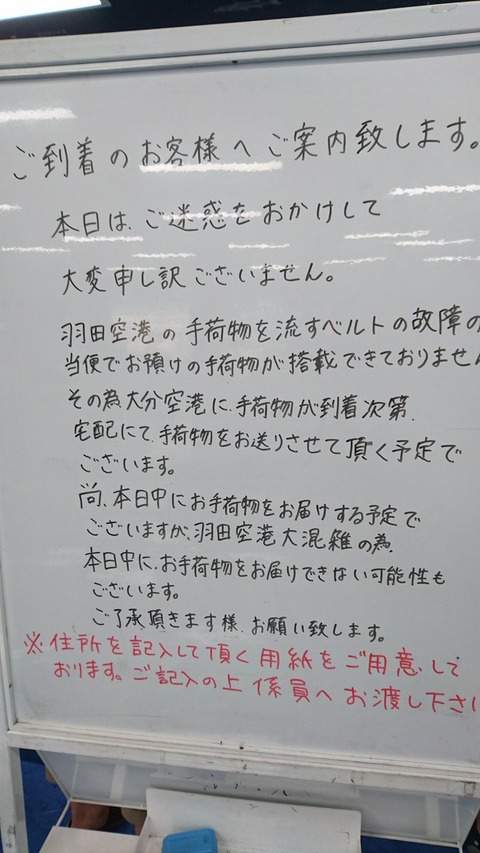 ご到着のお客様へご案内致します。
本日は、ご迷惑をおかけして
大変申し訳ございません。
羽田空港の手荷物を流すベルトの故障の
当便でお預けの手荷物が搭載できておりません
その為大分空港に、手荷物が到着次第、
宅配にて、手荷物をお送りさせて頂く予定で
ございます。
尚、本日中にお手荷物をお届けする予定で
ございますが、羽田空港大混雑の為、
本日中に、お手荷物をお届けできない可能性も
ございます。
ご了承頂きます様、お願い致します。
※住所を記入して頂く用紙をご用意して
おります。ご記入の上係員へお渡し下さい